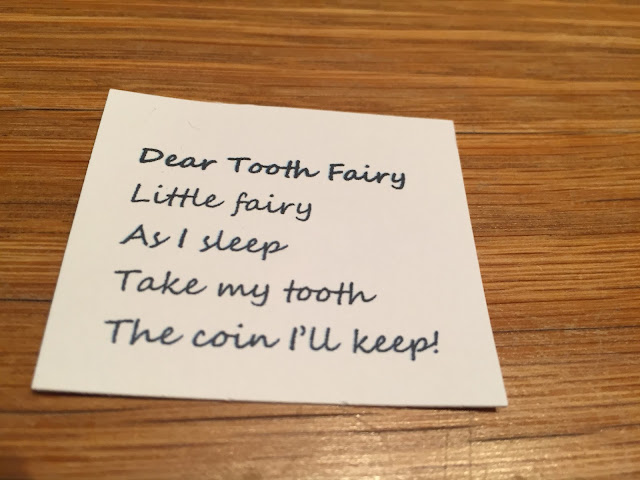 Dear Tooth Fairy
Little fairy
As I sleep
Take my tooth
The coin I'll keep!